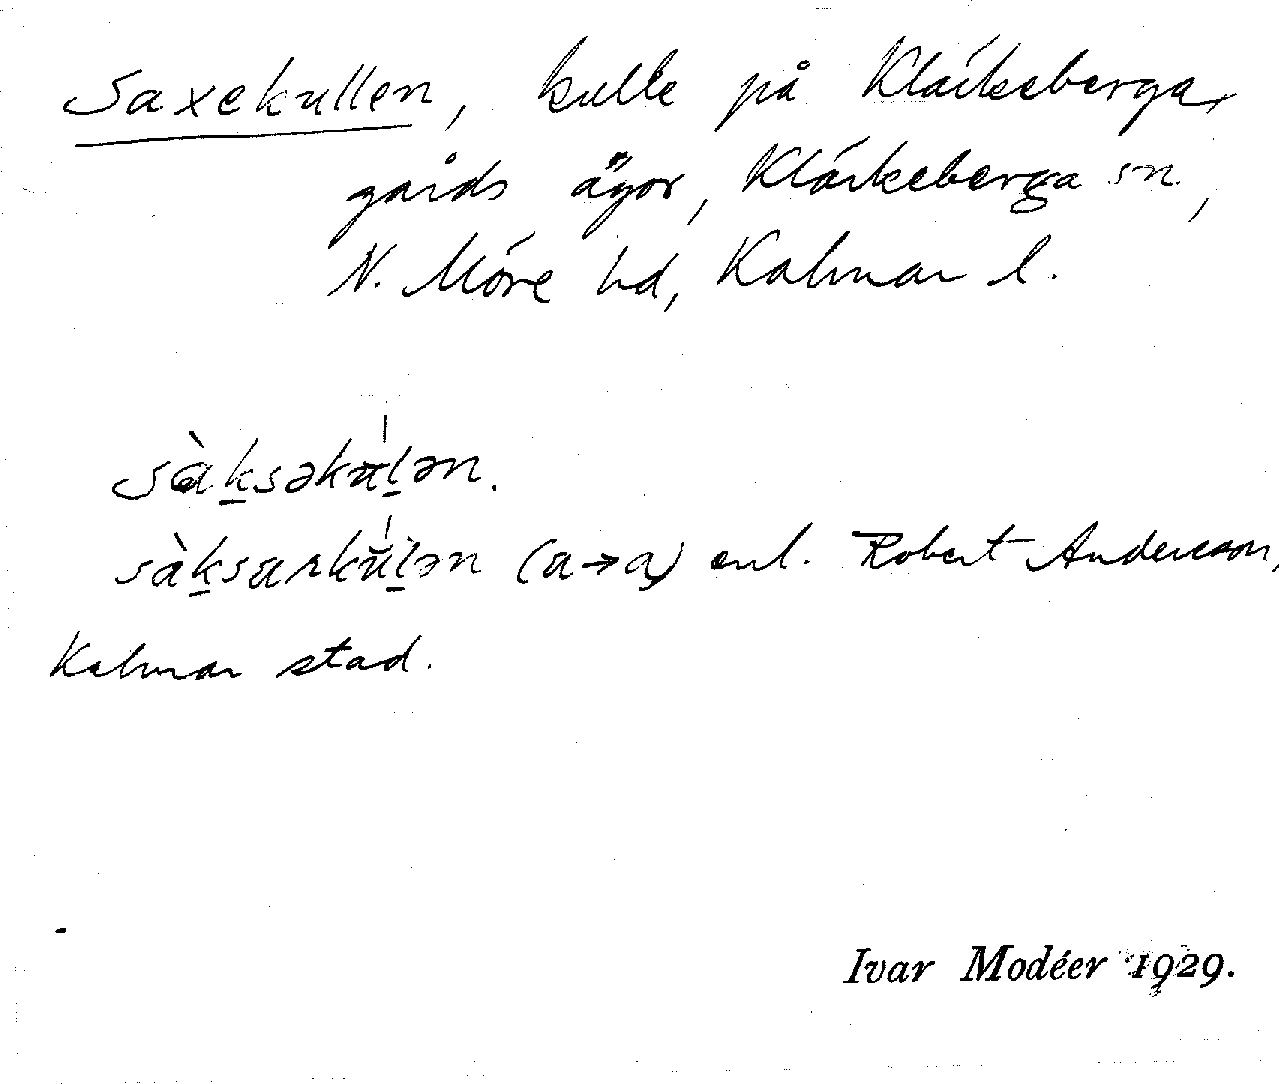 Saxekullen, kulle på Kläckeberga
gårds ägor, Kläckeberga sn,
N. Möre hd, Kalmar l.
sàk̠səkùl̠ən.
sàk̠sarkùl̠ən (a→a) enl. Robert Andersson,
Kalmar stad.
Ivar Modéer 1929.